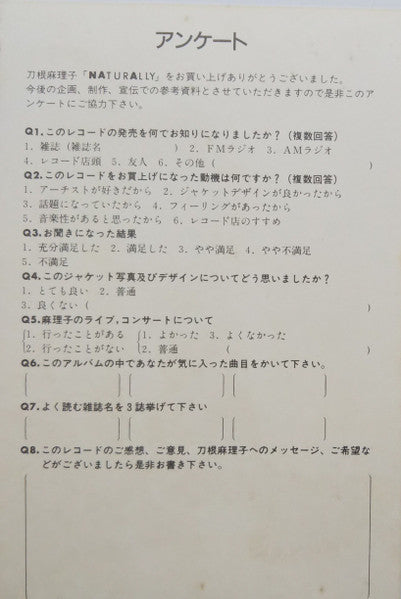 アンケート
刀根麻理子「NATURALLY」をお買い上げありがとうございました。
今後の企画、制作、宣伝での参考資料とさせていただきますので是非このア
ンケートにご協力下さい。
Q1.このレコードの発売を何でお知りになりましたか?(複数回答)
1. 雑誌(雑誌名 ) 2. FMラジオ 3. AMラジオ
4. レコード店頭 5. 友人 6. その他( )
Q2.このレコードをお買上げになった動機は何ですか?(複数回答)
1. アーチストが好きだから 2. ジャケットデザインが良かったから
3. 話題になっていたから 4. フィーリングがあったから
5. 音楽性があると思ったから 6. レコード店のすすめ
Q3.お聞きになった結果
1. 充分満足した 2. 満足した 3. やや満足 4. やや不満足
5. 不満足
Q4.このジャケット写真及びデザインについてどう思いましたか?
1. とても良い 2. 普通
3. 良くない( )
Q5.麻理子のライブ,コンサートについて
1. 行ったことがある 1. よかった 3. よくなかった
2. 行ったことがない 2. 普通 ( )
Q6.このアルバムの中であなたが気に入った曲目をかいて下さい。
Q7.よく読む雑誌名を3誌挙げて下さい
Q8.このレコードのご感想、ご意見、刀根麻理子へのメッセージ、ご希望な
どがございましたら是非お書き下さい。